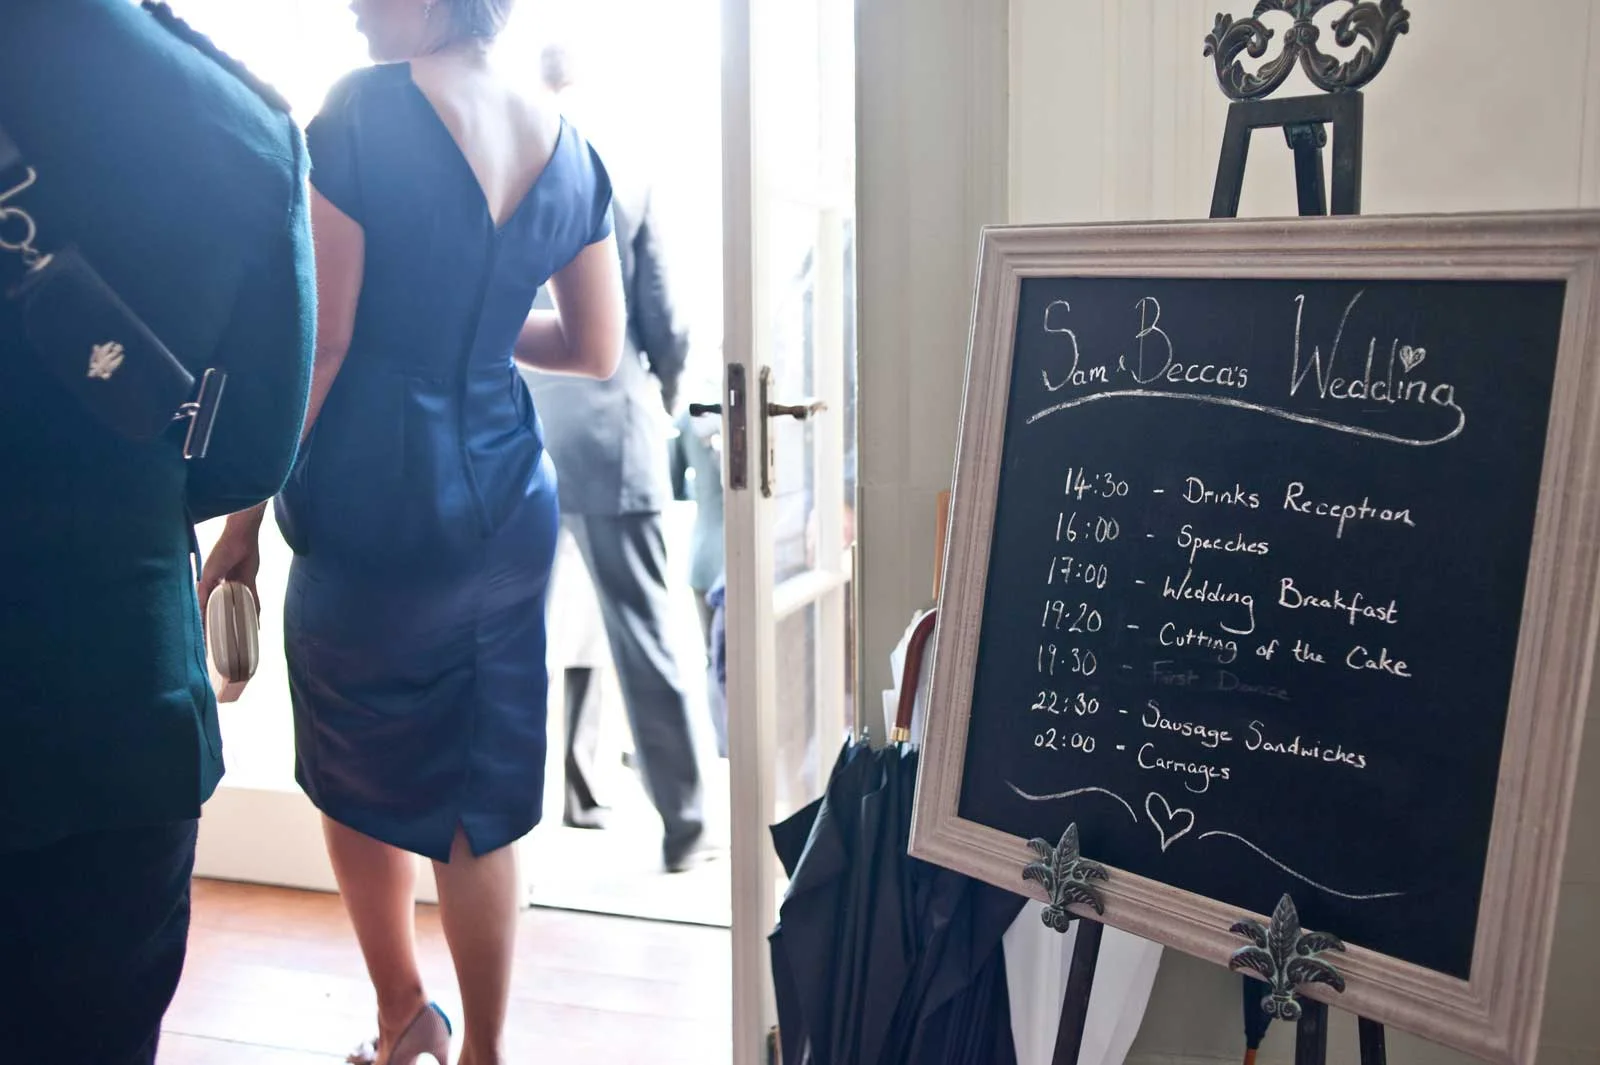 Sam & Becca's Wedding
14:30 - Drinks Reception
16:00 - Speeches
17:00 - Wedding Breakfast
19:20 - Cutting of the Cake
19:30 - First Dance
22:30 - Sausage Sandwiches
02:00 - Carriages